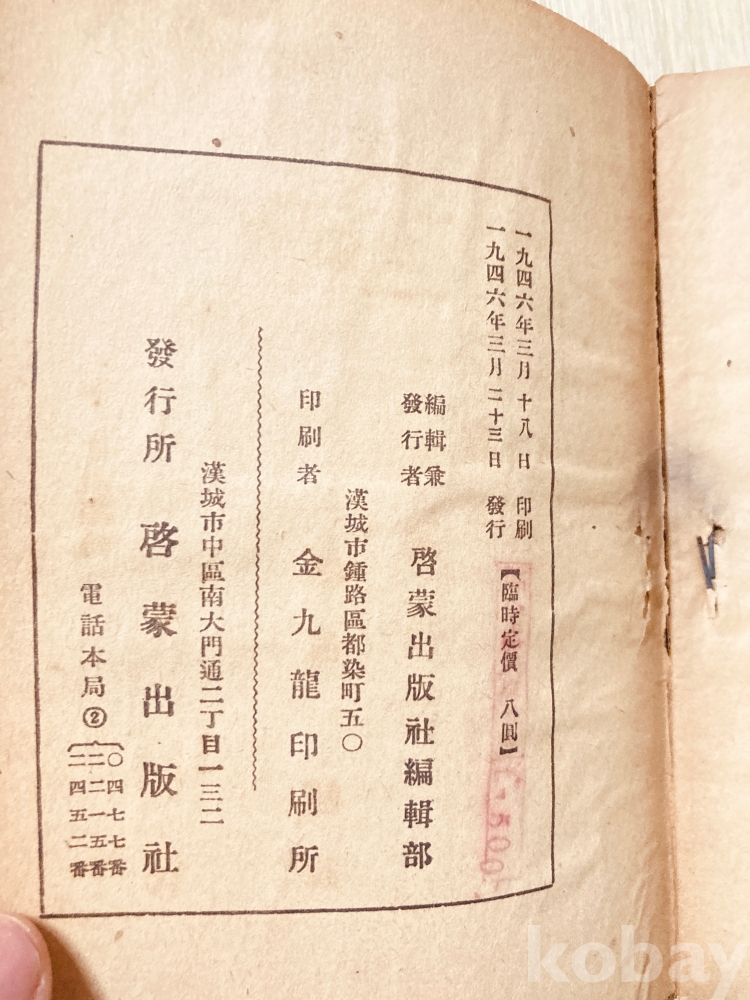 一九四六年三月 十八日 印刷
一九四六年三月二十三日 發行
【臨時定價 八圓】
500
編輯兼
發行者 啓蒙出版社編輯部
漢城市鍾路區都染町五〇
印刷者 金九龍印刷所
漢城市中區南大門通二丁目一三二
發行所 啓蒙出版社
電話本局②
〇四七七番
二二一五番
二四五二番
kobay